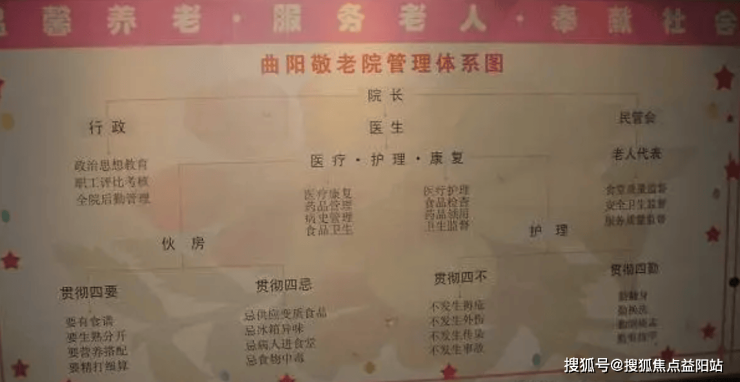 温馨养老·服务老人·奉献社会
曲阳敬老院管理体系图
院长
行政
医生
民管会
政治思想教育
职工评比考核
全院后勤管理
医疗·护理·康复
老人代表
医疗康复
药品管理
病史管理
食品卫生
医疗护理
食品检查
药品领用
卫生监督
食堂质量监督
安全卫生监督
服务质量监督
伙房
护理
贯彻四要
要有食谱
要生熟分开
要营养搭配
要精打细算
贯彻四忌
忌供应变质食品
忌冰箱异味
忌病人进食堂
忌食物中毒
贯彻四不
不发生褥疮
不发生外伤
不发生传染
不发生事故
贯彻四勤
搜狐号@搜狐焦点益阳站